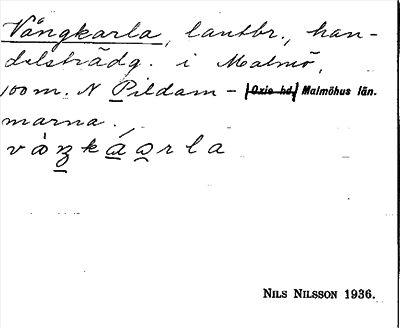 Vångkarla, lantbr., han-
delsträdg. i Malmö,
100 m. N Pildam- [Oxie hd,] Malmöhus län.
marna.
NILS NILSSON 1936.